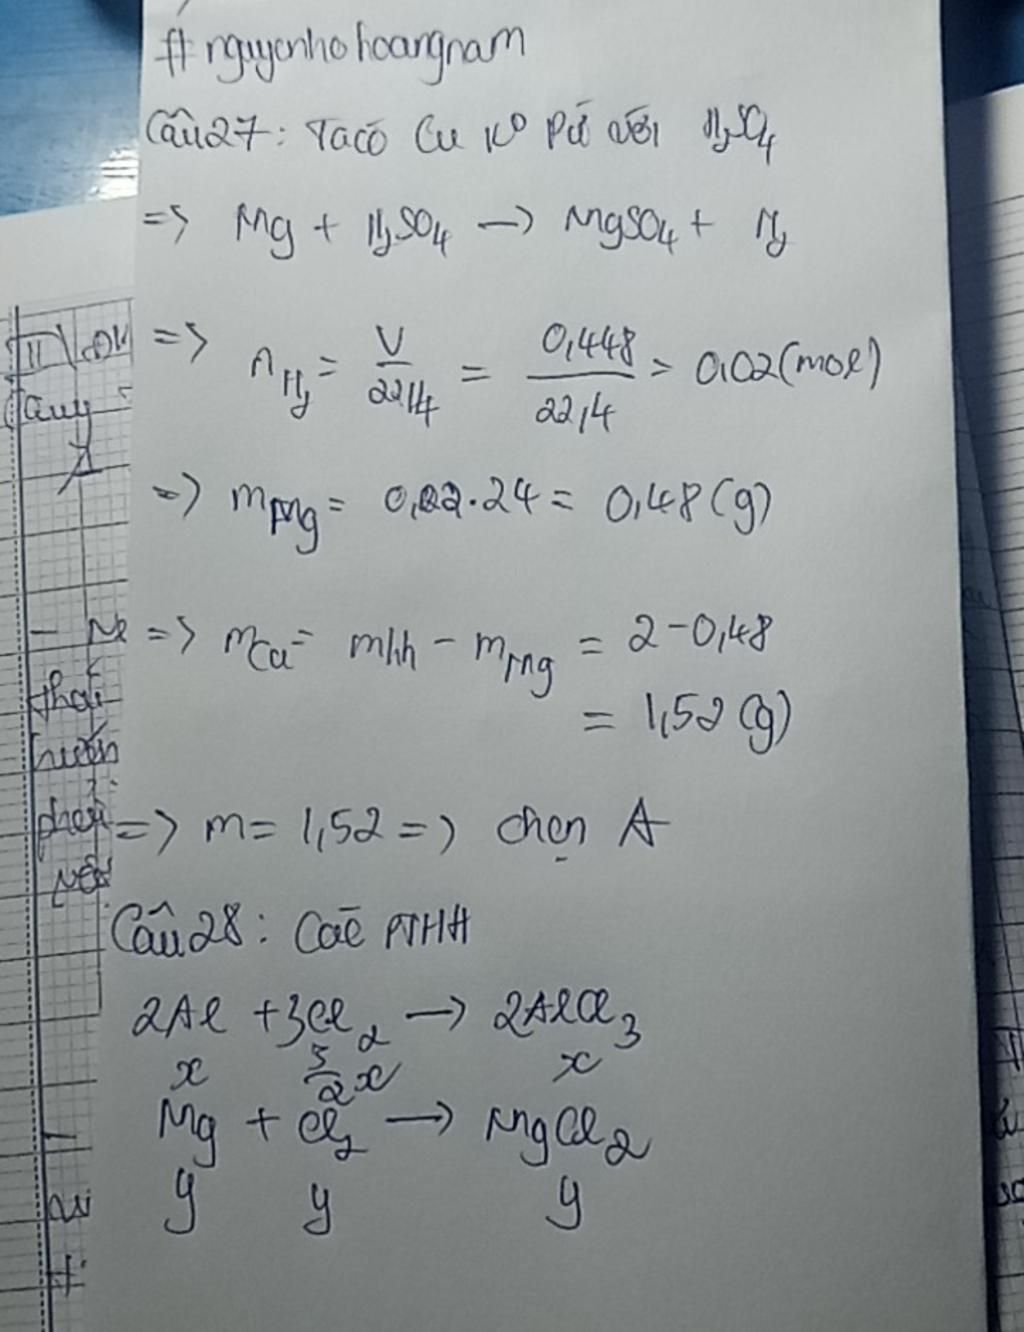 #nguyenhohoangnam
Câu27: Ta có Cu K⁰ Pứ với H₂SO₄
=> Mg + H₂SO₄ → MgSO₄ + H₂
=> n H₂ = V/22,4 = 0,448/22,4 = 0,02(mol)
=> mMg = 0,02.24 = 0,48(g)
=> mCu = mhh - mMg = 2-0,48
= 1,52(g)
=> m = 1,52 => chọn A
Câu28: Các PTHH
2Al + 3Cl₂ → 2AlCl₃
x 3/2x x
Mg + Cl₂ → MgCl₂
y y y